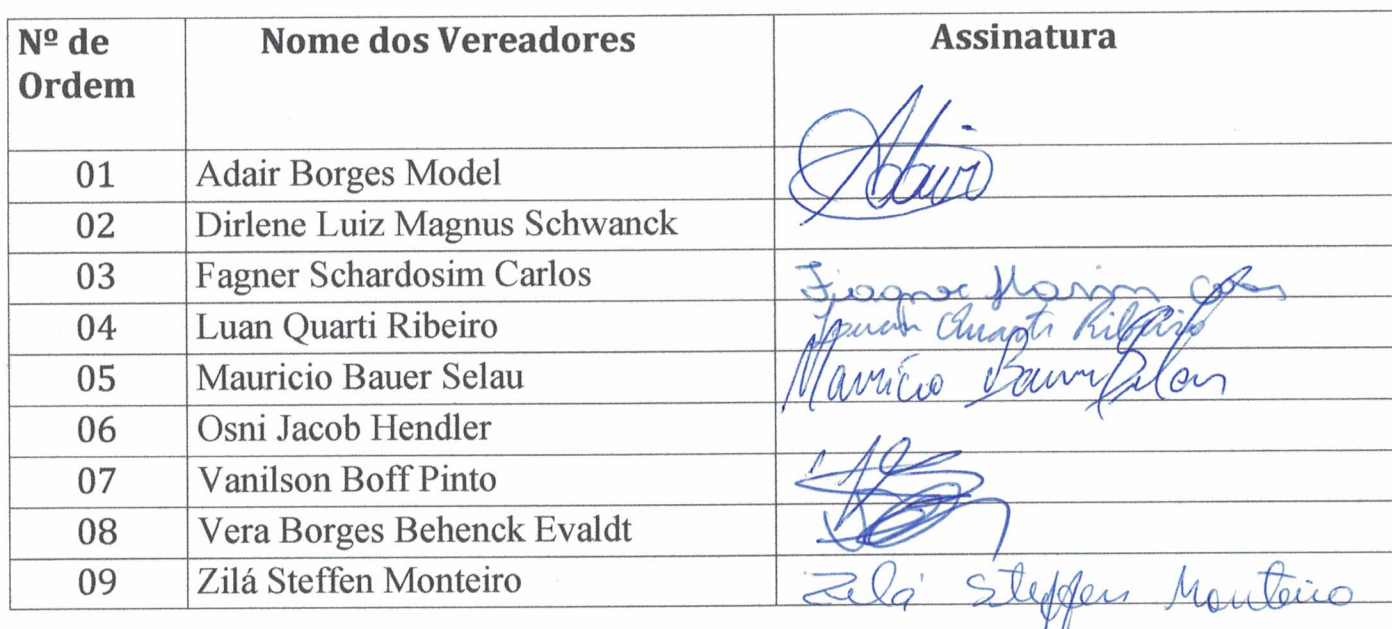 Nº de Ordem Nome dos Vereadores Assinatura
01 Adair Borges Model Adair
02 Dirlene Luiz Magnus Schwanck
03 Fagner Schardosim Carlos
04 Luan Quarti Ribeiro Luan Quarti Ribeiro
05 Mauricio Bauer Selau Maurício Bauer Selau
06 Osni Jacob Hendler
07 Vanilson Boff Pinto
08 Vera Borges Behenck Evaldt
09 Zilá Steffen Monteiro Zilá Steffen Monteiro